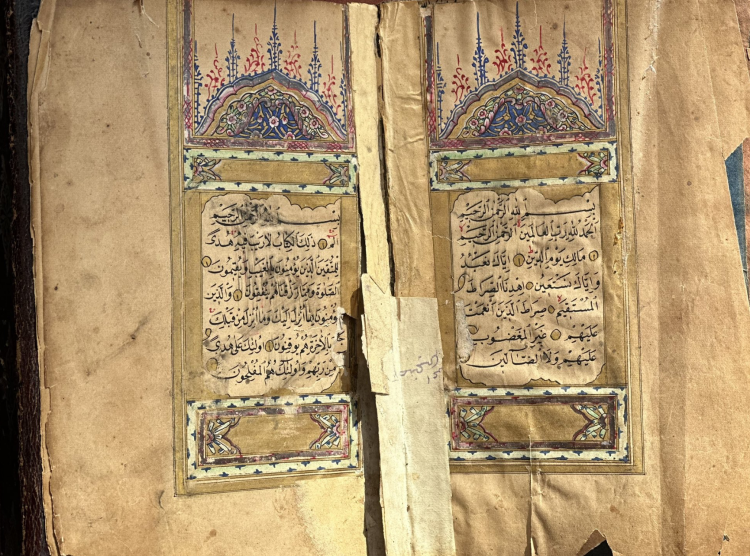 بسم الله الرحمن الرحيم
الحمد لله رب العالمين الرحمن الرحيم
مالك يوم الدين اياك نعبد
واياك نستعين اهدنا الصراط
المستقيم صراط الذين انعمت
عليهم غير المغضوب
عليهم ولا الضالين
بسم الله الرحمن الرحيم
الم ذلك الكتاب لا ريب فيه هدى
للمتقين الذين يؤمنون بالغيب ويقيمون
الصلوة ومما رزقناهم ينفقون والذين
يؤمنون بما انزل اليك وما انزل من قبلك
وبالآخرة هم يوقنون اولئك على هدى
من ربهم واولئك هم المفلحون